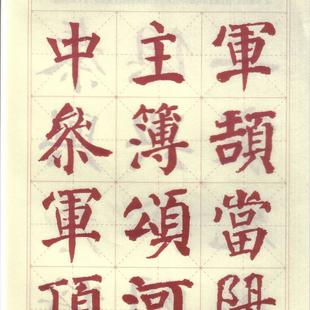 軍頡當陽
主簿頌河
中參軍頂